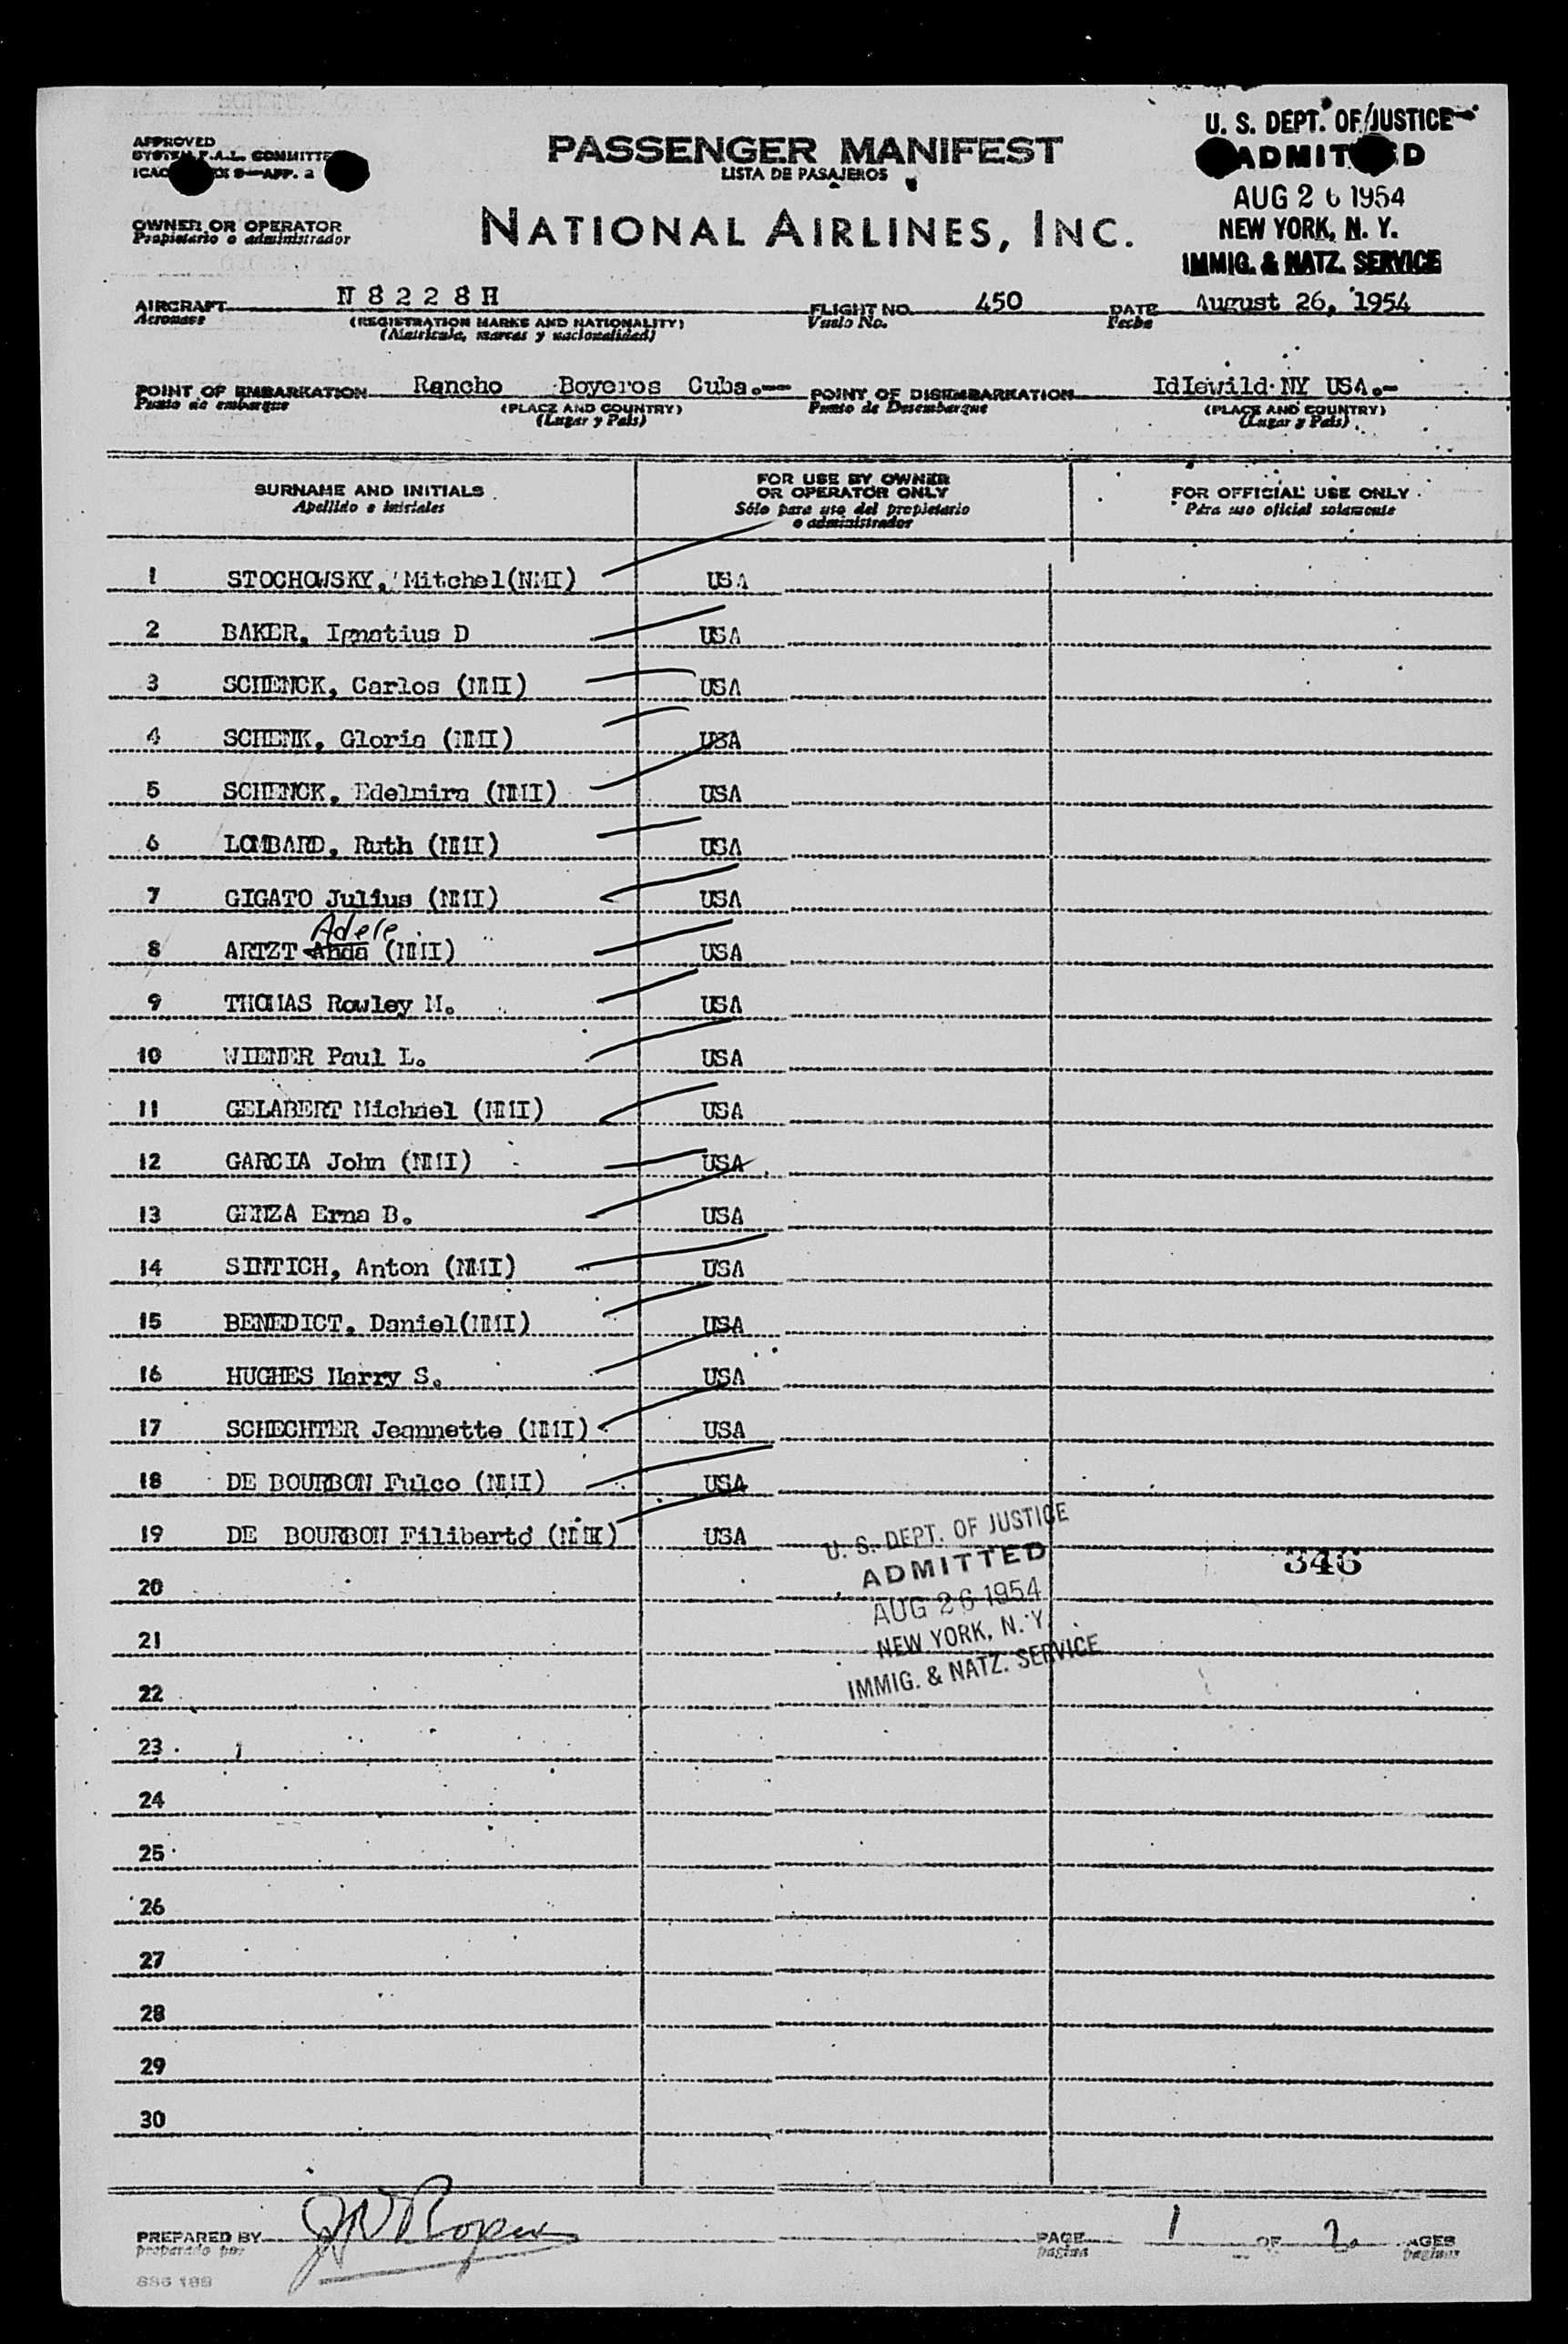 APPROVED
SYSTEM F.A.L. COMMITTEE
ICAO 9—APP. 2
PASSENGER MANIFEST
LISTA DE PASAJEROS
U. S. DEPT. OF JUSTICE
ADMITTED
AUG 26 1954
NEW YORK, N. Y.
IMMIG. & NATZ. SERVICE
OWNER OR OPERATOR
Propietario o administrador
NATIONAL AIRLINES, INC.
AIRCRAFT N 8 2 2 8 H FLIGHT NO. 450 DATE August 26, 1954
Aeronave (REGISTRATION MARKS AND NATIONALITY) Vuelo No. Fecha
(Matricula, marcas y nacionalidad)
POINT OF EMBARKATION Rancho Boyeros Cuba.-- POINT OF DISEMBARKATION Idlewild NY USA.-
Punto de embarque (PLACE AND COUNTRY) Punto de Desembarque (PLACE AND COUNTRY)
(Lugar y Pais) (Lugar y Pais)
SURNAME AND INITIALS
Apellido e iniciales
FOR USE BY OWNER
OR OPERATOR ONLY
Sólo para uso del propietario
o administrador
FOR OFFICIAL USE ONLY
Para uso oficial solamente
1 STOCHOWSKY, Mitchel(NMI) USA
2 BAKER, Ignatius D USA
3 SCHENCK, Carlos (NMI) USA
4 SCHENK, Gloria (NMI) USA
5 SCHENCK, Edelmira (NMI) USA
6 LOMBARD, Ruth (NMI) USA
7 GIGATO Julius (NMI) USA
Adele
8 ARTZT (NMI) USA
9 THOMAS Rowley M. USA
10 WIENER Paul L. USA
11 GELABERT Michael (NMI) USA
12 GARCIA John (NMI) USA
13 Erna B. USA
14 SINTICH, Anton (NMI) USA
15 BENEDICT, Daniel(NMI) USA
16 HUGHES Harry S. USA
17 SCHECHTER Jeannette (NMI) USA
18 DE BOURBON Fulco (NMI) USA
19 DE BOURBON Filiberto (NMI) USA
U. S. DEPT. OF JUSTICE
ADMITTED
AUG 26 1954
NEW YORK, N. Y.
IMMIG. & NATZ. SERVICE
346
20
21
22
23
24
25
26
27
28
29
30
PREPARED BY PAGE 1 OF 2 PAGES
preparado por pagina paginas